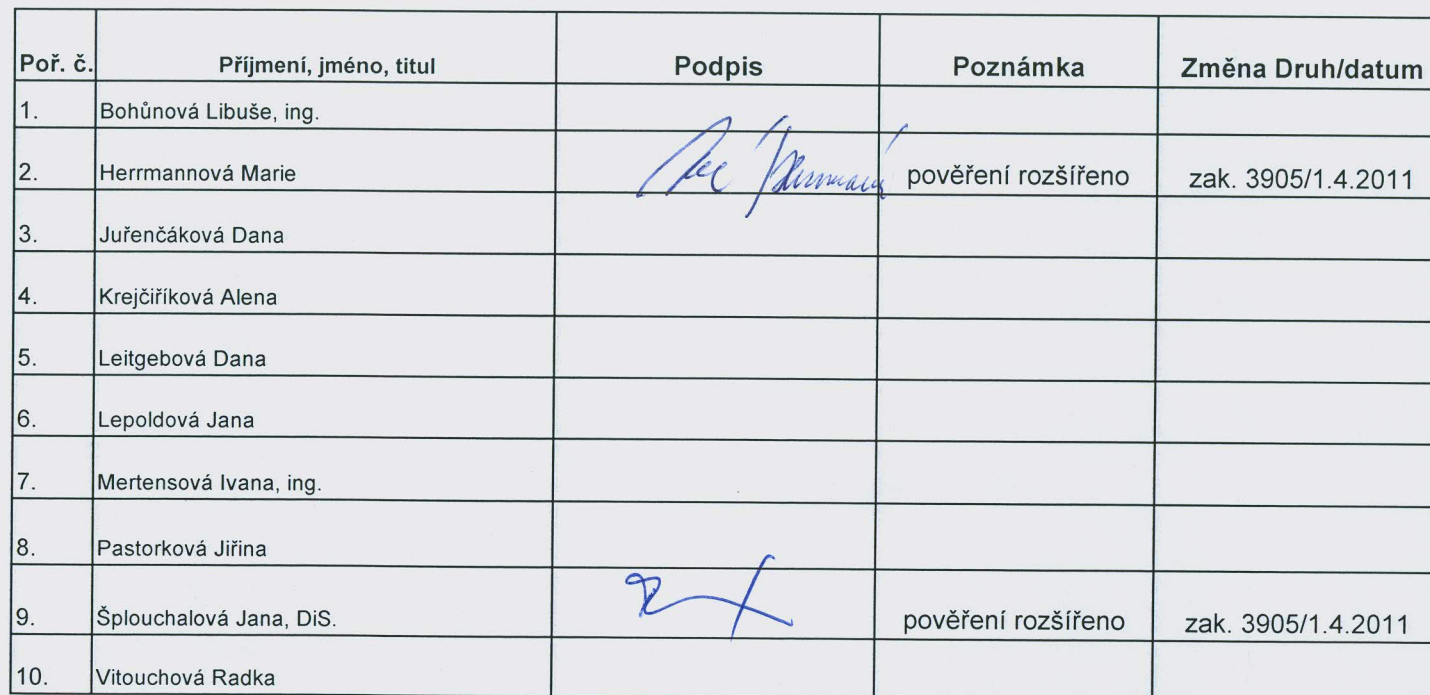 Poř. č. Příjmení, jméno, titul Podpis Poznámka Změna Druh/datum
1. Bohůnová Libuše, ing.
2. Herrmannová Marie pověření rozšířeno zak. 3905/1.4.2011
3. Juřenčáková Dana
4. Krejčiříková Alena
5. Leitgebová Dana
6. Lepoldová Jana
7. Mertensová Ivana, ing.
8. Pastorková Jiřina
9. Šplouchalová Jana, DiS. pověření rozšířeno zak. 3905/1.4.2011
10. Vitouchová Radka